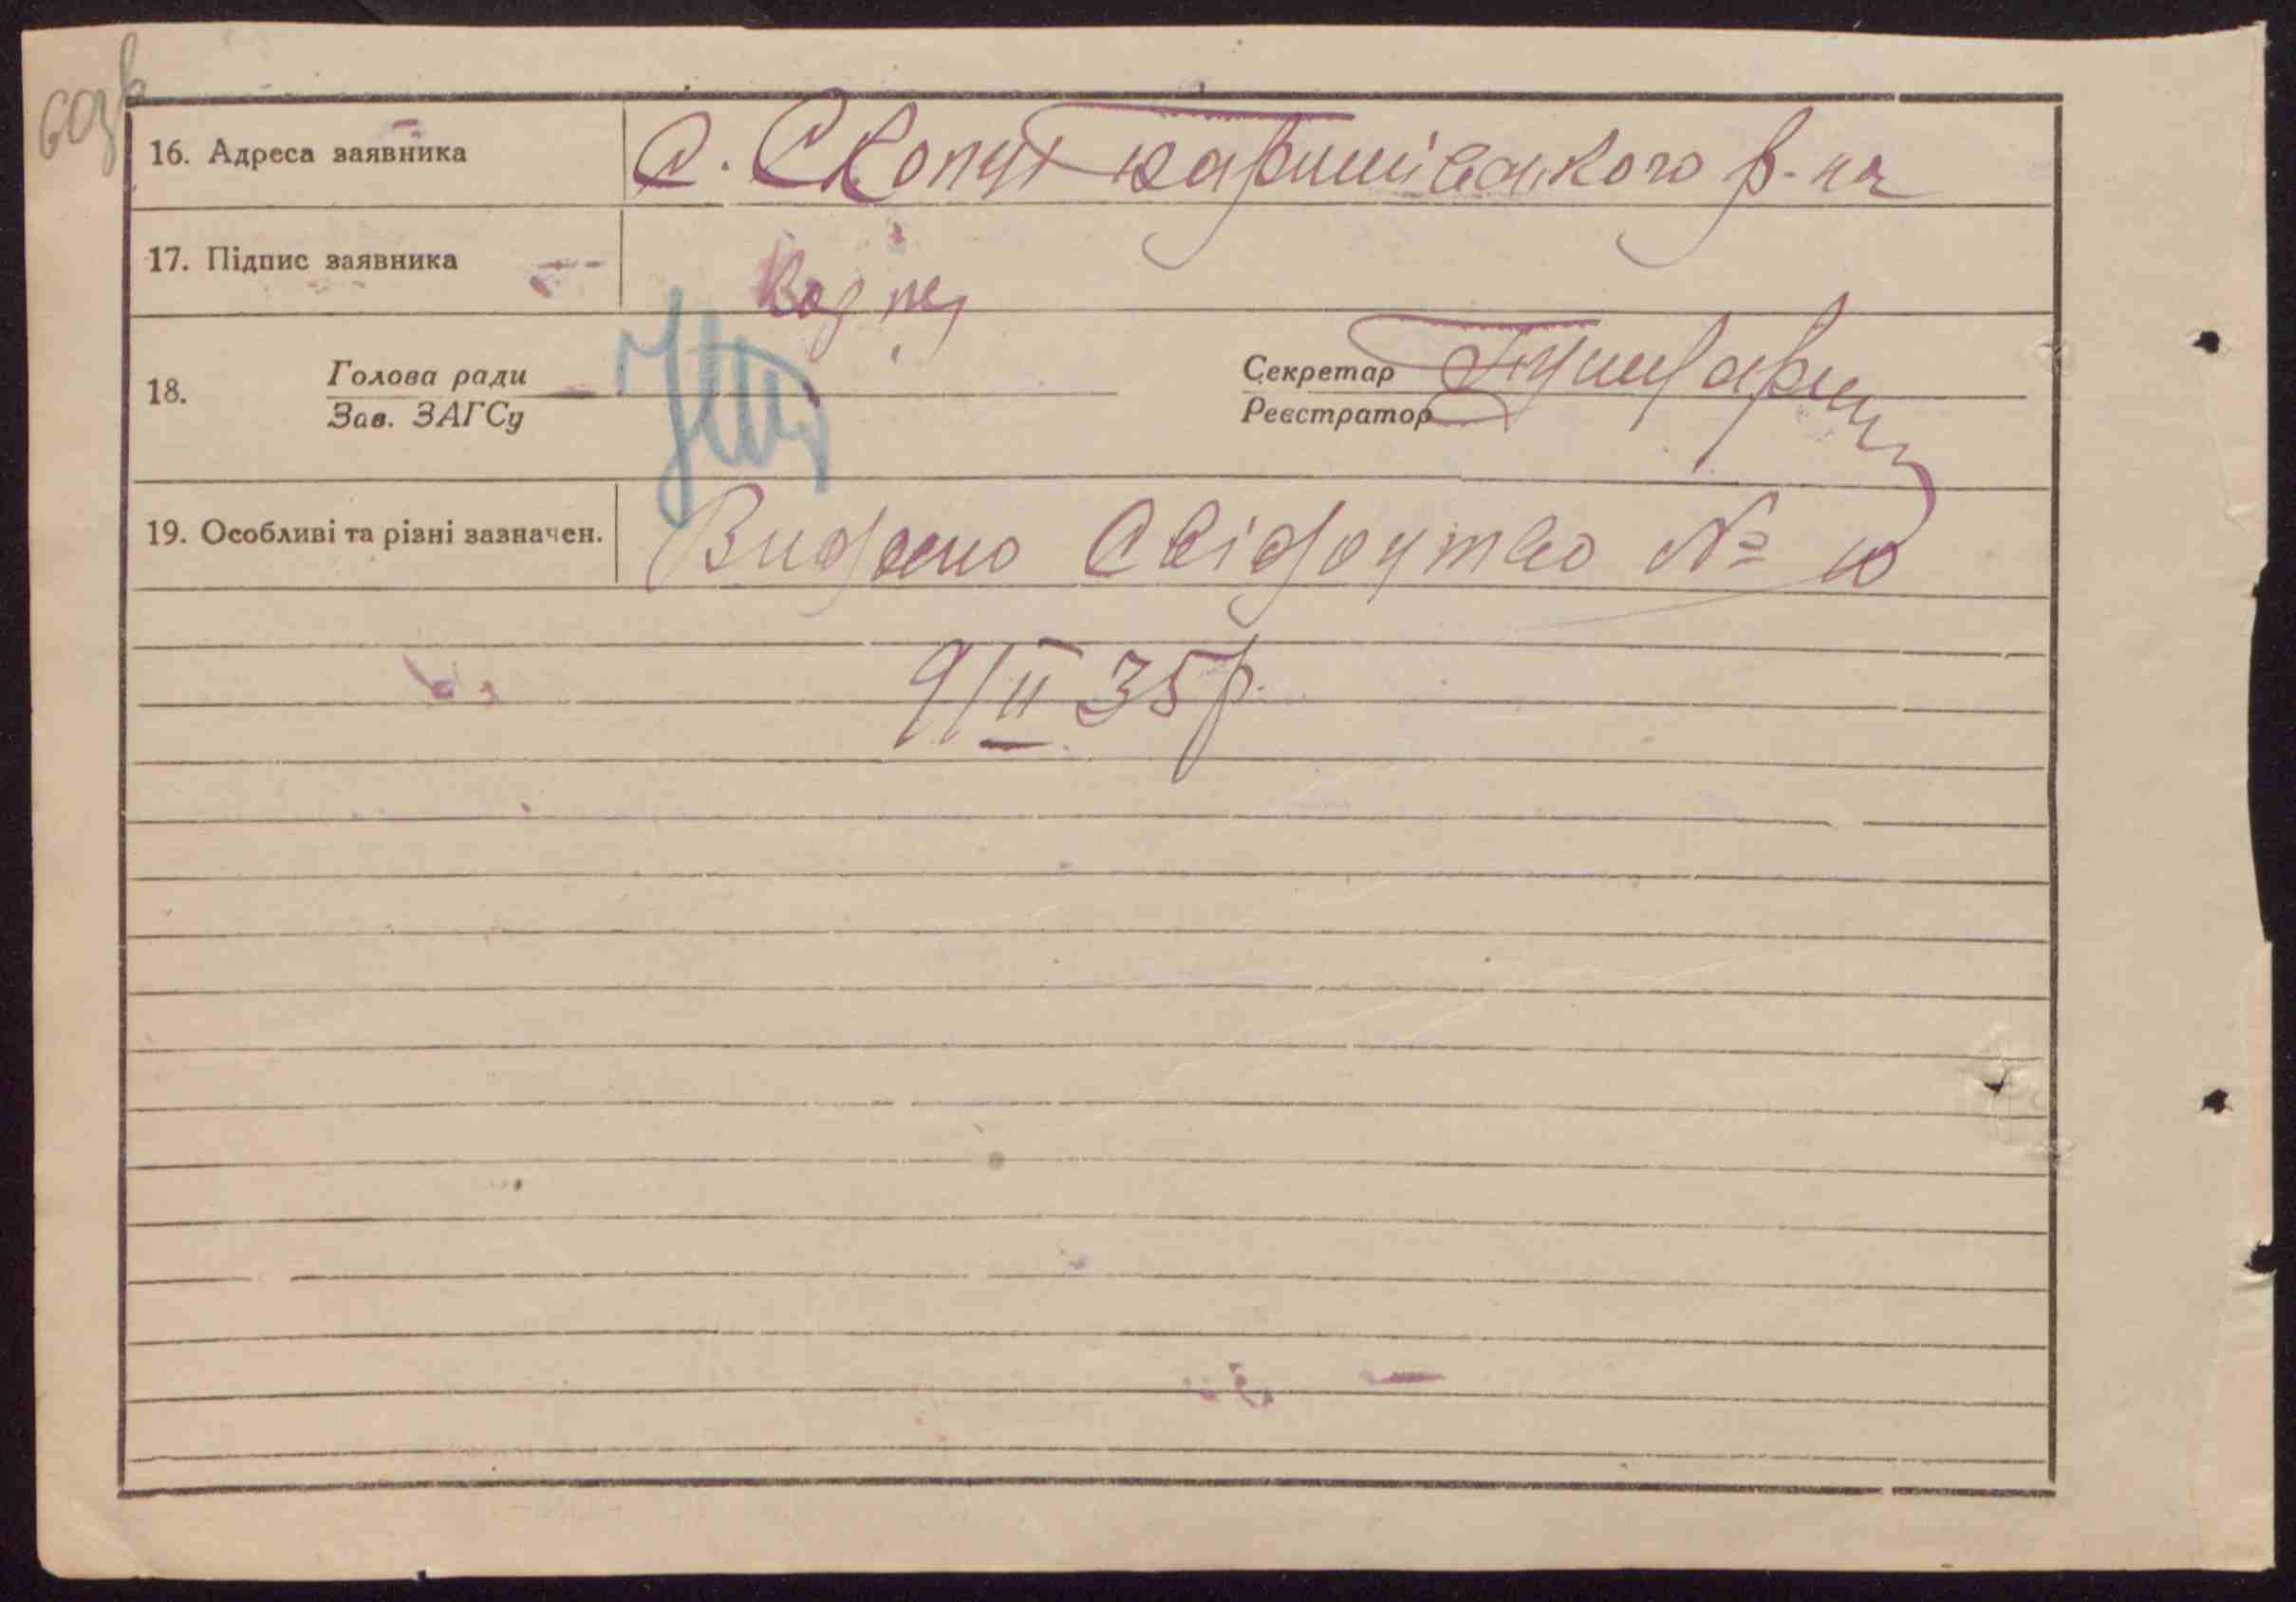 16. Адреса заявника с. Скопці Баришівського р-на
17. Підпис заявника
18. Голова ради Секретар
Зав. ЗАГСу Реєстратор
19. Особливі та різні зазначен. Видано Свідоцтво № 10
9/II 35 р.